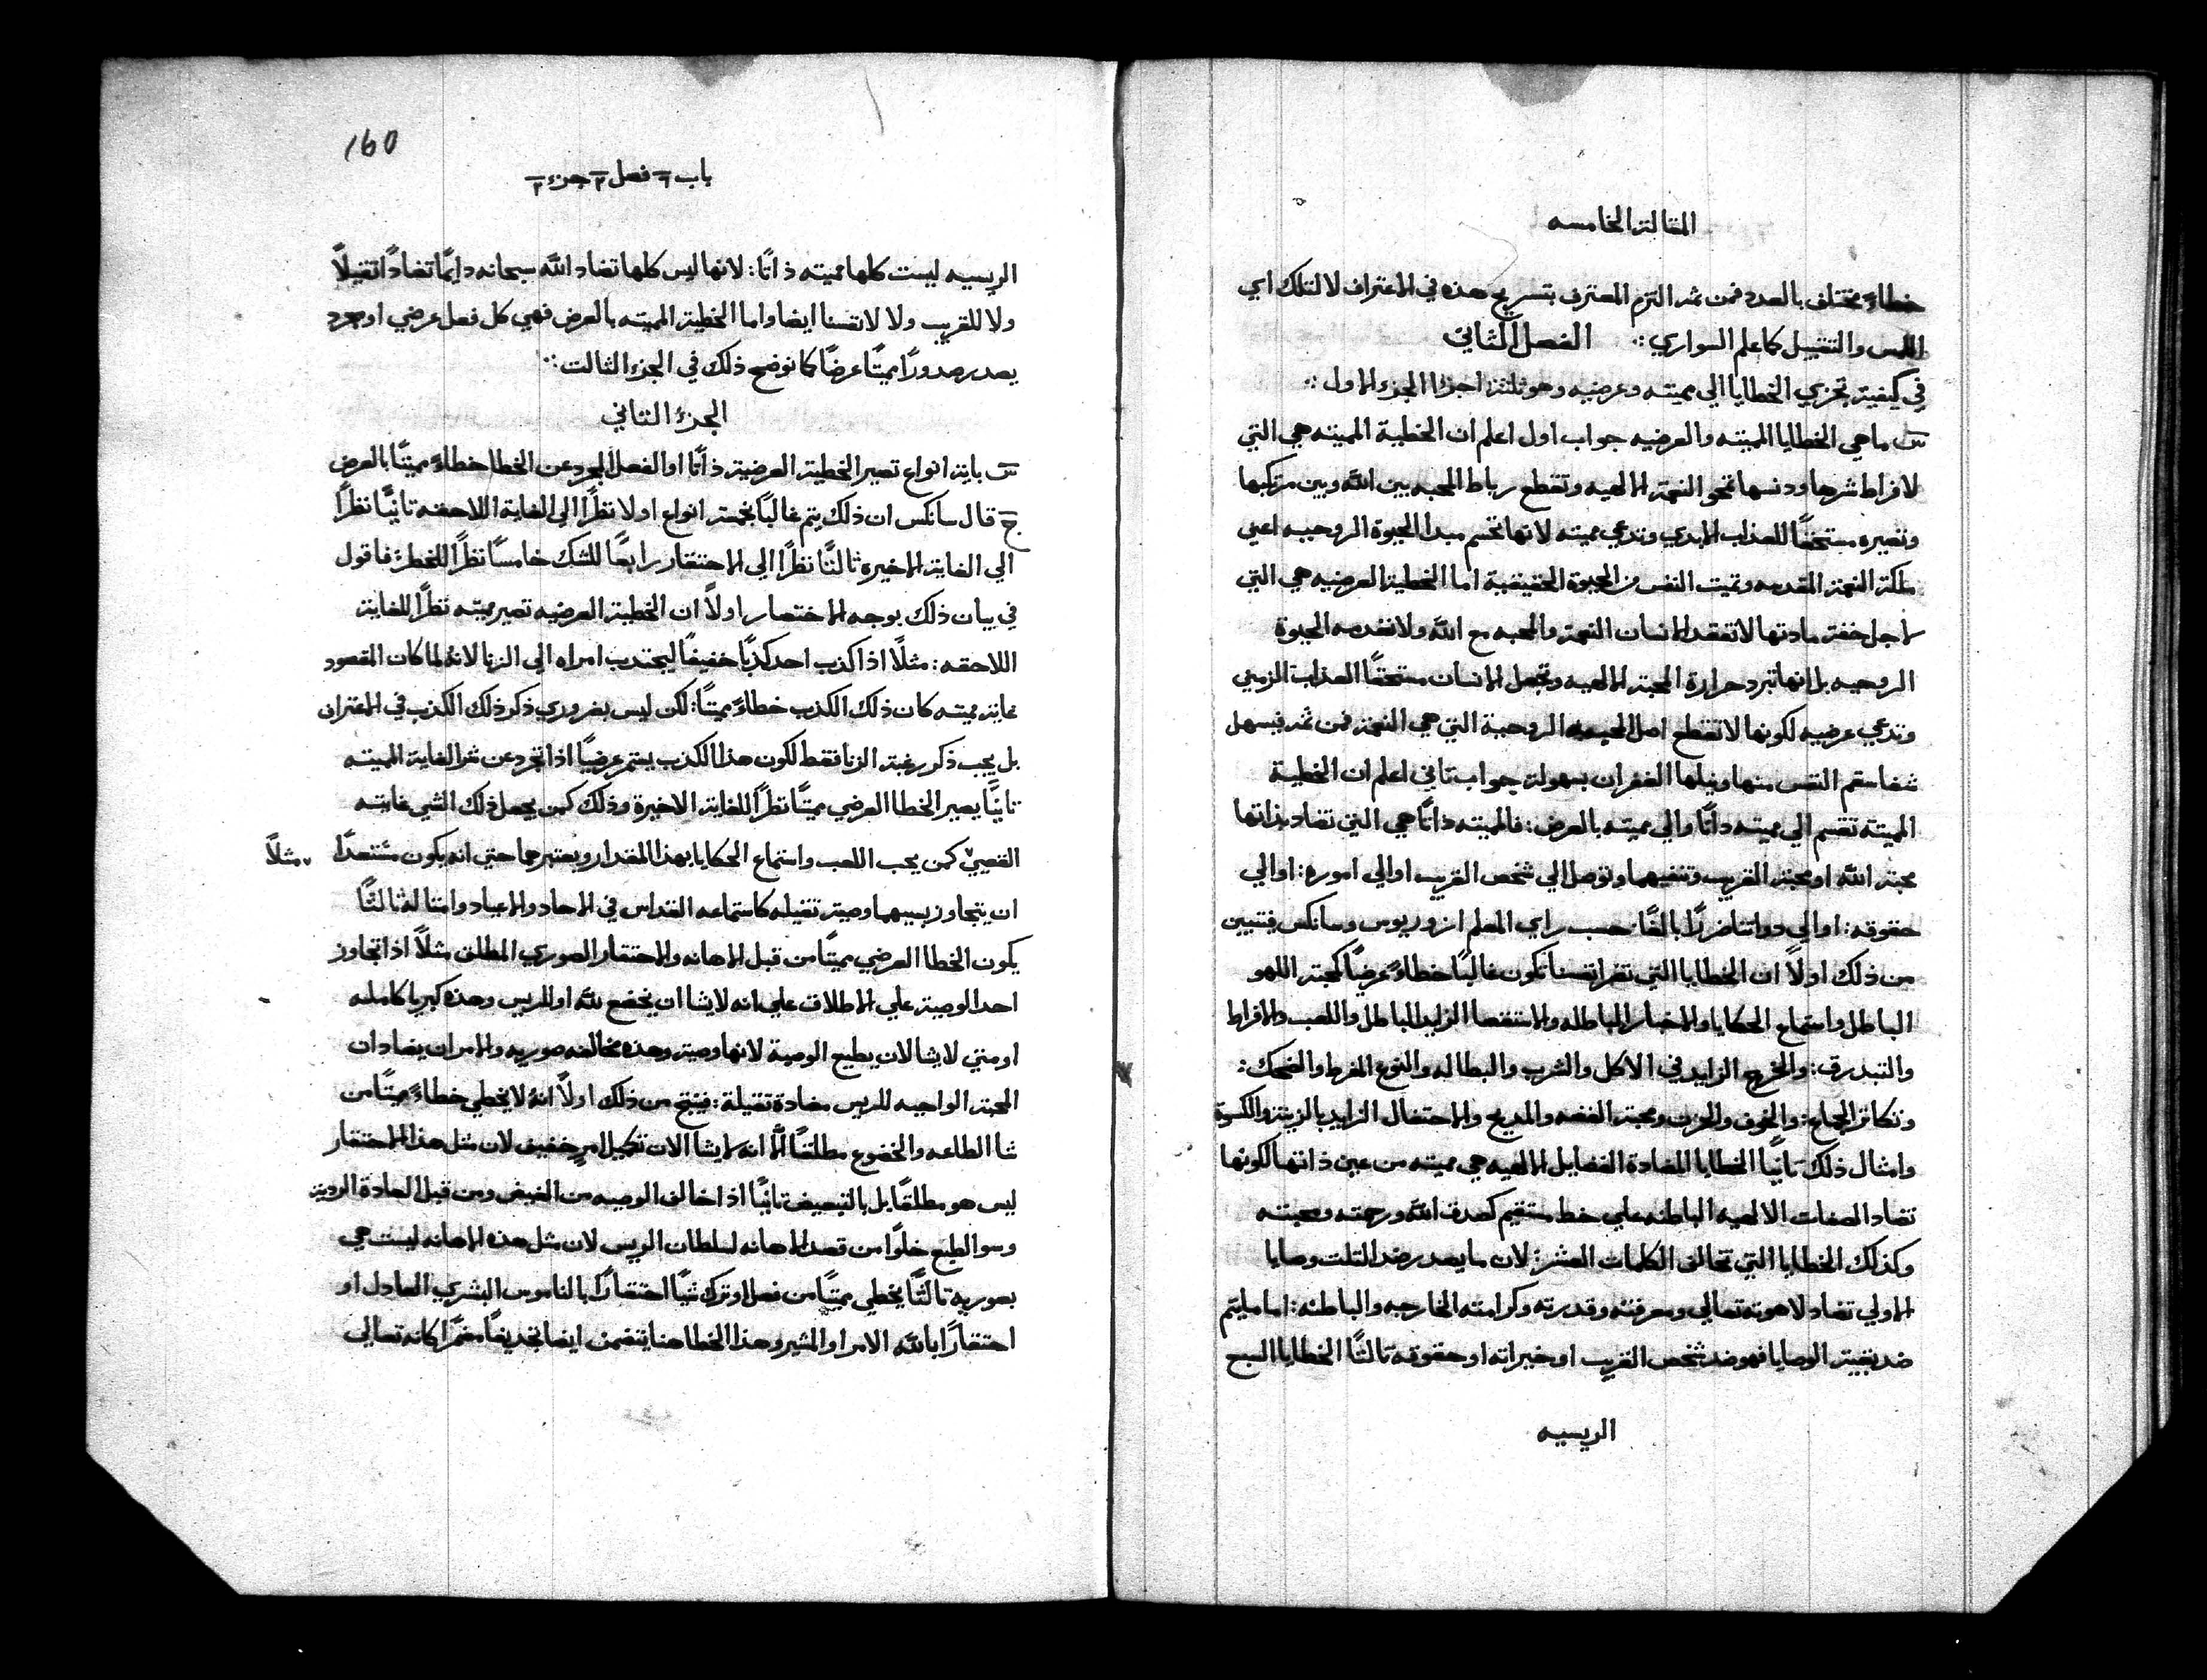 المقالة الخامسه
خطاءً مختلف بالعدد فمن ثم التزم المعترف بتسريح هذه في الاعتراف لا لتلك اي
اللمس والتقبيل كما علم السواري ∴ الفصل الثاني
في كيفية تجزي الخطايا الي مميته وعرضيه وهو ثلثة اجزا الجزء الاول ∴
س ما هي الخطايا المميته والعرضيه جواب اول اعلم ان الخطية المميته هي التي
لافراط شرها ودنسها تمحو النعمة الالهيه وتقطع رباط المحبه بين الله وبين مرتكبها
وتصيره مستحقًا للعذاب الابدي وتدعي مميته لانها تحسم مبدا الحيوة الروحيه اعني
ملكة النعمة المقدسه وتميت النفس من الحيوة الحقيقية اما الخطية العرضيه هي التي
لاجل خفة مادتها لا تفقد الانسان النعمة والمحبه مع الله ولا تعدمه الحيوة
الروحيه بل انها تبرد حرارة المحبة الالهيه وتجعل الانسان مستحقًا العذاب الزمني
وتدعي عرضيه لكونها لا تقطع اصل الروحية التي هي النعمة فمن ثم فيسهل
شفا سقم النفس منها ونيلها الغفران بسهولة جواب تاني اعلم ان الخطية
المميته تقسم الي مميته ذاتًا والي مميته بالعرض: فالمميته ذاتًا هي التي تضاد بذاتها
محبة الله او محبة القريب وتنفيهما وتوصل الي شخص القريب او الي اموره: او الي
حقوقه: او الي ذواتنا ضررًا بالغًا حسب راي المعلم ازوريوس وسانكس فيتبين
من ذلك اولاً ان الخطايا التي تضر انفسنا تكون غالبًا خطاءً عرضيًا كمحبة اللهو
الباطل واستماع الحكايا والاخبار الباطله والاستقصا الزايد الباطل واللعب والافراط
والتبدرق: والخرج الزايد في الاكل والشرب والبطاله والنوع المفرط والضحك:
وتكاتر الجماع: والخوف والحزن ومحبة الفضه والمديح والاحتفال الزايد بالزينة والكسوة
وامثال ذلك تانيًا الخطايا المضادة الفضايل الالهيه هي مميته من عين ذاتها لكونها
تضاد الصفات الالهيه الباطنه علي خط مستقيم كصدق الله ورحمته ومحبته
وكذلك الخطايا التي تخالف الكلمات العشر: لان ما يصدر ضد التلت وصايا
الاولي تضاد لاهوته تعالي ومعرفته وقدرته وكرامته الخارجه والباطنه: اما ما يتم
ضد بقية الوصايا فهو ضد شخص القريب او خيراته او حقوقه تالتًا الخطايا السبع
الريسيه
160
باب ٦ فصل ٢ جزء ٢
الريسيه ليست كلها مميته ذاتًا: لانها ليس كلها تضاد الله سبحانه دايمًا تضادًا تقيلاً
ولا للقريب ولا لانفسنا ايضا واما الخطية المميته بالعرض فهي كل فعل عرضي او مجرد
يصدر صدورًا مميتًا عرضًا كما نوضح ذلك في الجزء التالت ∴
الجزء التاني
س باية انواع تصير الخطية العرضية ذاتًا او الفعل المجرد عن الخطا خطاءً مميتًا بالعرض
ج قال سانكس ان ذلك يتم غالبًا بخمسة انواع اولا نظرًا الي الغاية اللاحقه تانيًا نظرًا
الي الغاية الاخيره تالتًا نظرًا الي الاحتقار رابعًا للشك خامسًا نظرًا للخطر: فاقول
في بيان ذلك بوجه الاختصار اولاً ان الخطية العرضيه تصير مميته نظرًا للغاية
اللاحقه: مثلاً اذا كذب احد كذبًا خفيفًا ليجتدب امراه الي الزنا لانه لما كان المقصود
غاية مميته كان ذلك الكذب خطاءً مميتًا: لكن ليس بضروري ذكر ذلك الكذب في الاعتراف
بل يجب ذكر رغبة الزنا فقط لكون هذا الكذب يستمر عرضيًا اذا تجرد عن شر الغاية المميته
تانيًا يصير الخطا العرضي مميتًا نظرًا للغاية الاخيرة وذلك كمن يجعل ذلك الشي غايته
القصيي كمن يحب اللعب واستماع الحكايا بهذا المقدار ويعتبرهما حتي انه يكون مستعدًا مثلاً
ان يتجاوز بسببهما وصية تقيله كاستماعه القداس في الاحاد والاعياد وامتاله تالتًا
يكون الخطا العرضي مميتًا من قبل الاهانه والاحتقار الصوري المطلق مثلاً اذا تجاوز
احد الوصية علي الاطلاق علي انه لا يشا ان يخضع لله او للريس وهذه كبريا كامله
او متي لا يشا لان يطيع الوصية لانها وصية وهذه مخالفه صوريه والامران يضادان
المحبة الواجبه للريس مضادة تقيلة: فينتج من ذلك اولاً انه لا يخطي خطاءً مميتًا من
شا الطاعه والخضوع مطلقًا الا انه لا يشا الان تكميل امر خفيف لان متل هذا الاحتقار
ليس هو مطلقًا بل بالتبعيض تانيًا اذا خالف الوصيه من الغيض ومن قبل العادة الردية
وسو الطبع خلوًا من قصد الاهانه لسلطان الريس لان متل هذه الاهانه ليست هي
بصوريه تالتًا يخطي مميتًا من فعل او ترك شيًا احتقارًا بالناموس البشري العادل او
احتقارًا بالله الامر او المشير وهذا الخطا هنا يتضمن ايضا تجديفًا مضمرًا كانه تعالي